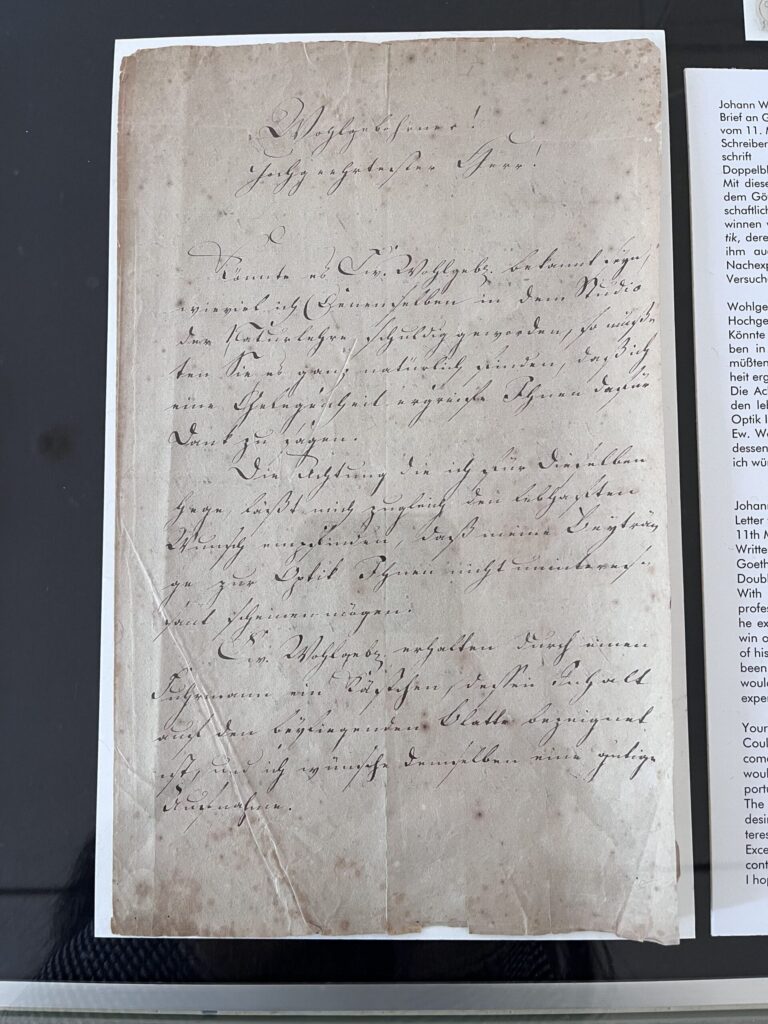 Wohlgebohrner!
Hochgeehrtester Herr!
Könnte es Ew. Wohlgeb. bekannt seyn,
wieviel ich Denenselben in dem Studio
der Naturlehre schuldig geworden, so müß-
ten Sie es ganz natürlich finden, daß ich
eine Gelegenheit ergreife Ihnen dafür
Dank zu sagen.
Die Achtung die ich für Dieselben
hege, läßt mich zugleich den lebhaften
Wunsch empfinden, daß meine Beyträ-
ge zur Optik Ihnen nicht uninteres-
sant scheinen mögen.
Ew. Wohlgeb. erhalten durch einen
Fuhrmann ein Kästchen, dessen Inhalt
auf den beyliegenden Blatte bezeignet
ist, und ich wünsche demselben eine gütige
Aufnahme.
Johann W
Brief an G
vom 11. M
Schreiber
schrift
Doppelbl
Mit diese
dem Gö
schaftlich
winnen v
tik, dere
ihm au
Nachexp
Versuche
Wohlge
Hochge
Könnte
ben in
müßten
heit erg
Die Ac
den leb
Optik I
Ew. Wo
dessen
ich wü
Johann
Letter
11th M
Writte
Goeth
Doubl
With
profes
he ex
win o
of his
been
would
exper
Your
Coul
come
woul
portu
The
desir
teres
Exce
cont
I hop